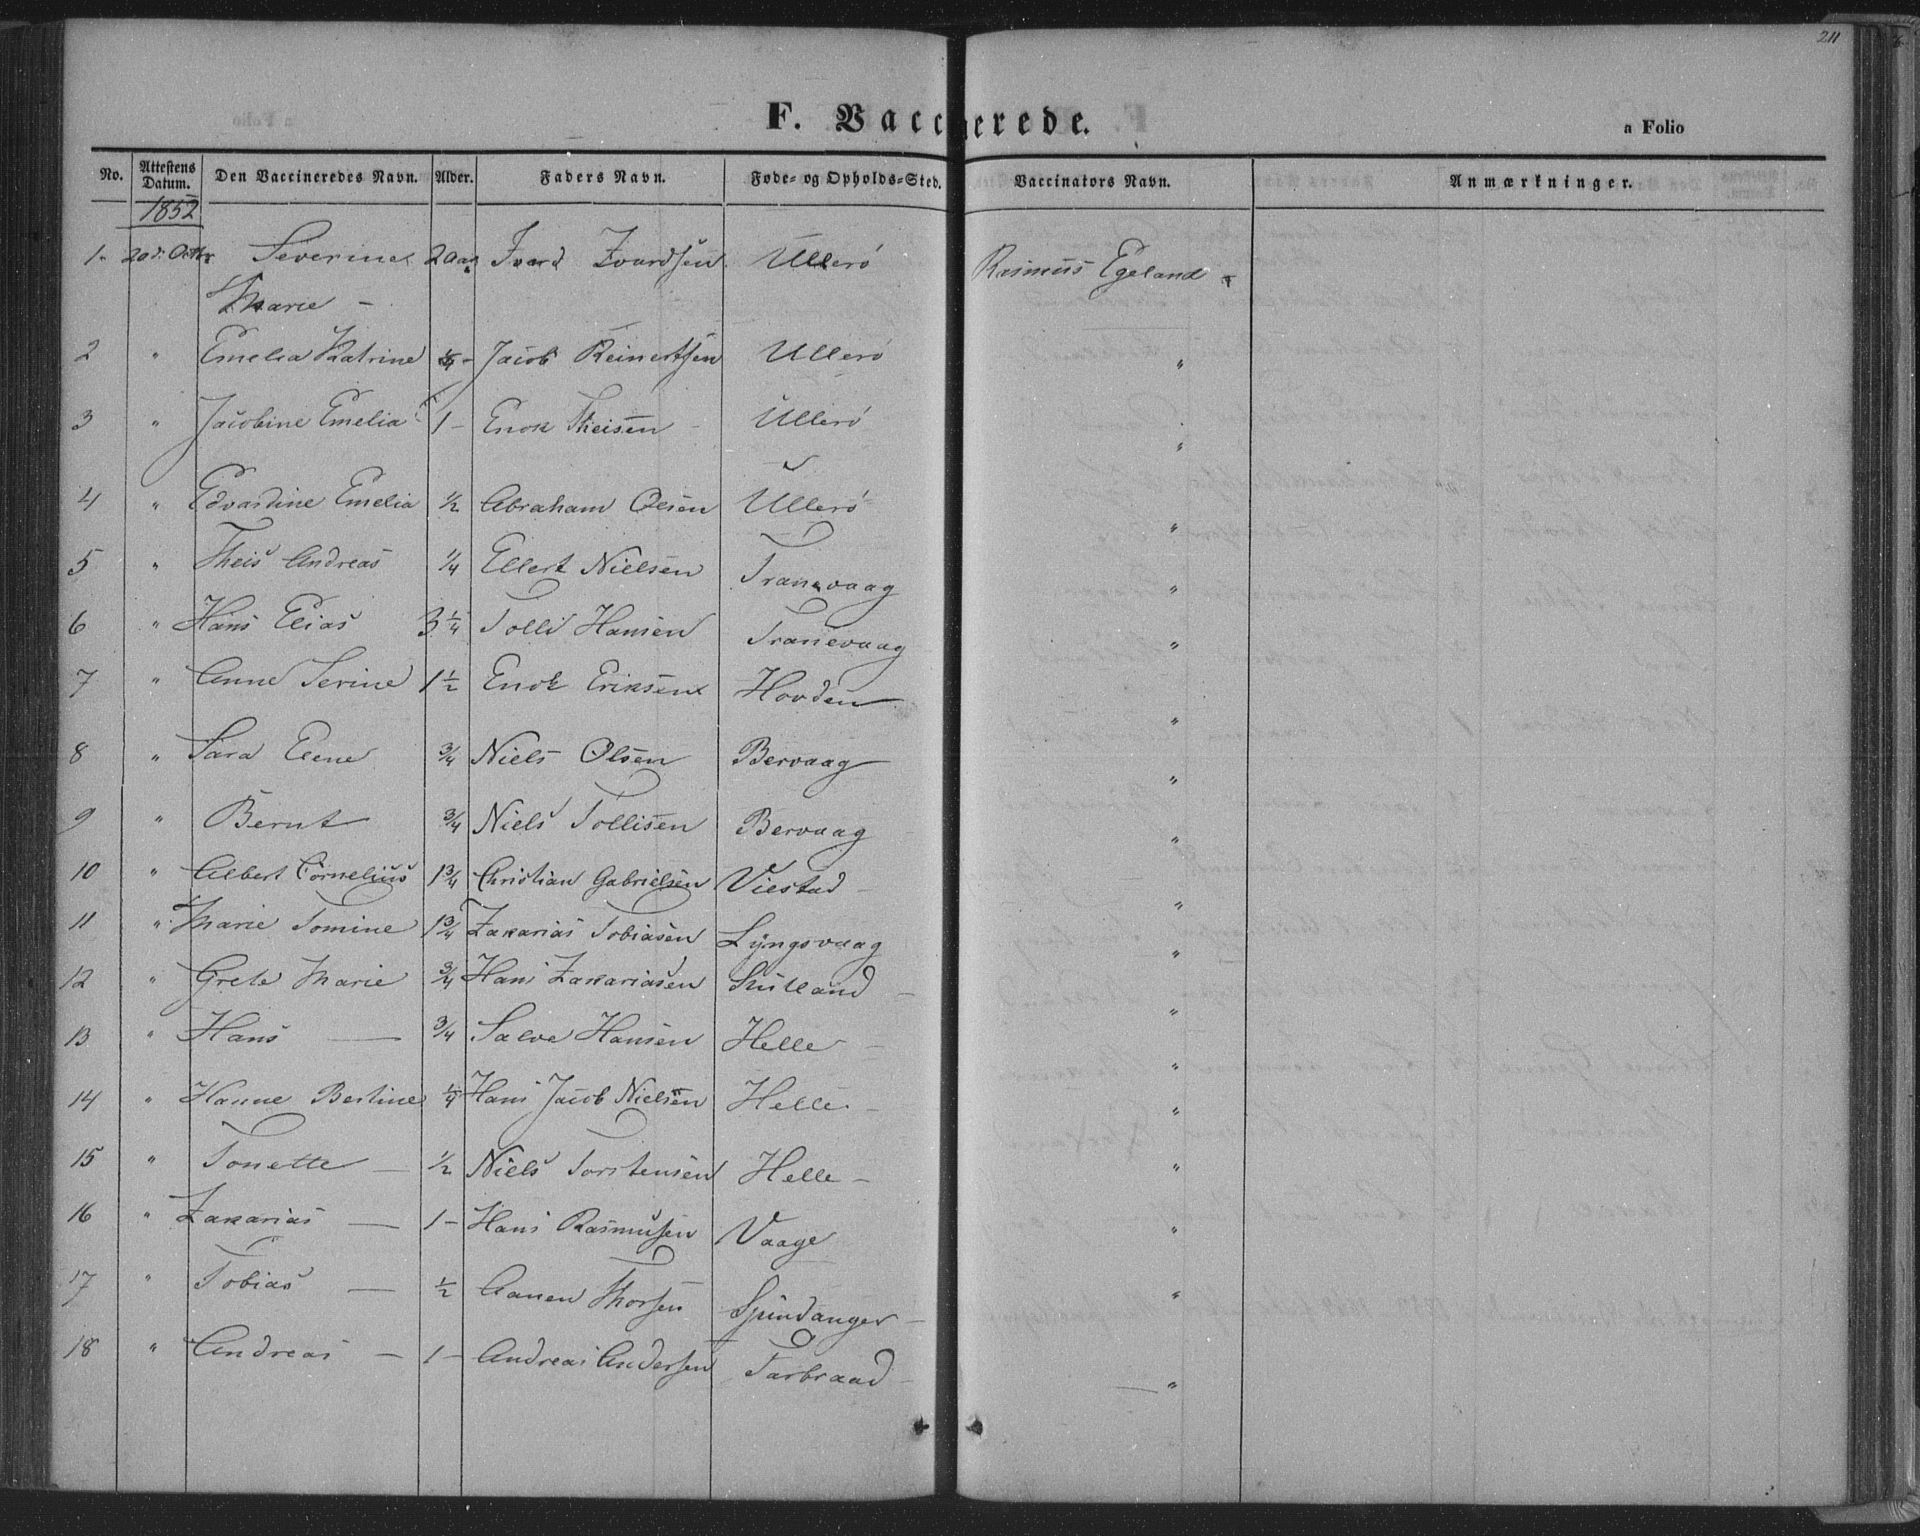 211
F. Vaccinerede.
a Folio
No. Attestens Datum. Den Vaccineredes Navn. Alder. Faders Navn. Føde- og Opholds-Sted. Vaccinators Navn. Anmærkninger.
1852
1. 20de Octbr Severine 2 Aar Ivard Ivardsen Ullerø Rasmus Egeland
Marie –
2 " Emelia Katrine – Jacob Reinertsen Ullerø "
3 " Jacobine Emelia 1 – Enok Theisen Ullerø "
4 " Edvardine Emelia 1/2 Abraham Olsen Ullerø "
5 " Theis Andreas 1/4 Ellert Nielsen Tranevaag "
6 " Hans Elias 3 1/4 Tolli Hansen Tranevaag "
7 " Anne Serine 1 1/2 Enok Eriksen Hovden "
8 " Sara Elene 3/4 Niels Olsen Bervaag "
9 " Bernt 3/4 Niels Tollisen Bervaag "
10 " Albert Cornelius 1 3/4 Christian Gabrielsen Viestad – "
11 " Marie Tomine 1 3/4 Zakarias Tobiasen Lyngsvaag "
12 " Grete Marie 3/4 Hans Zakariasen – "
13 " Hans — 3/4 Salve Hansen Helle – "
14 " Hanne Bertine 1/4 Hans Jacob Nielsen Helle – "
15 " Tonette — 1/2 Niels Torstensen Helle – "
16 " Zakarias — 1 – Hans Rasmusen Vaage "
17 " Tobias — 1/2 Aanen Thorsen Spindanger – "
18 " Andreas — 1 – Andreas Andersen Farbraad – "